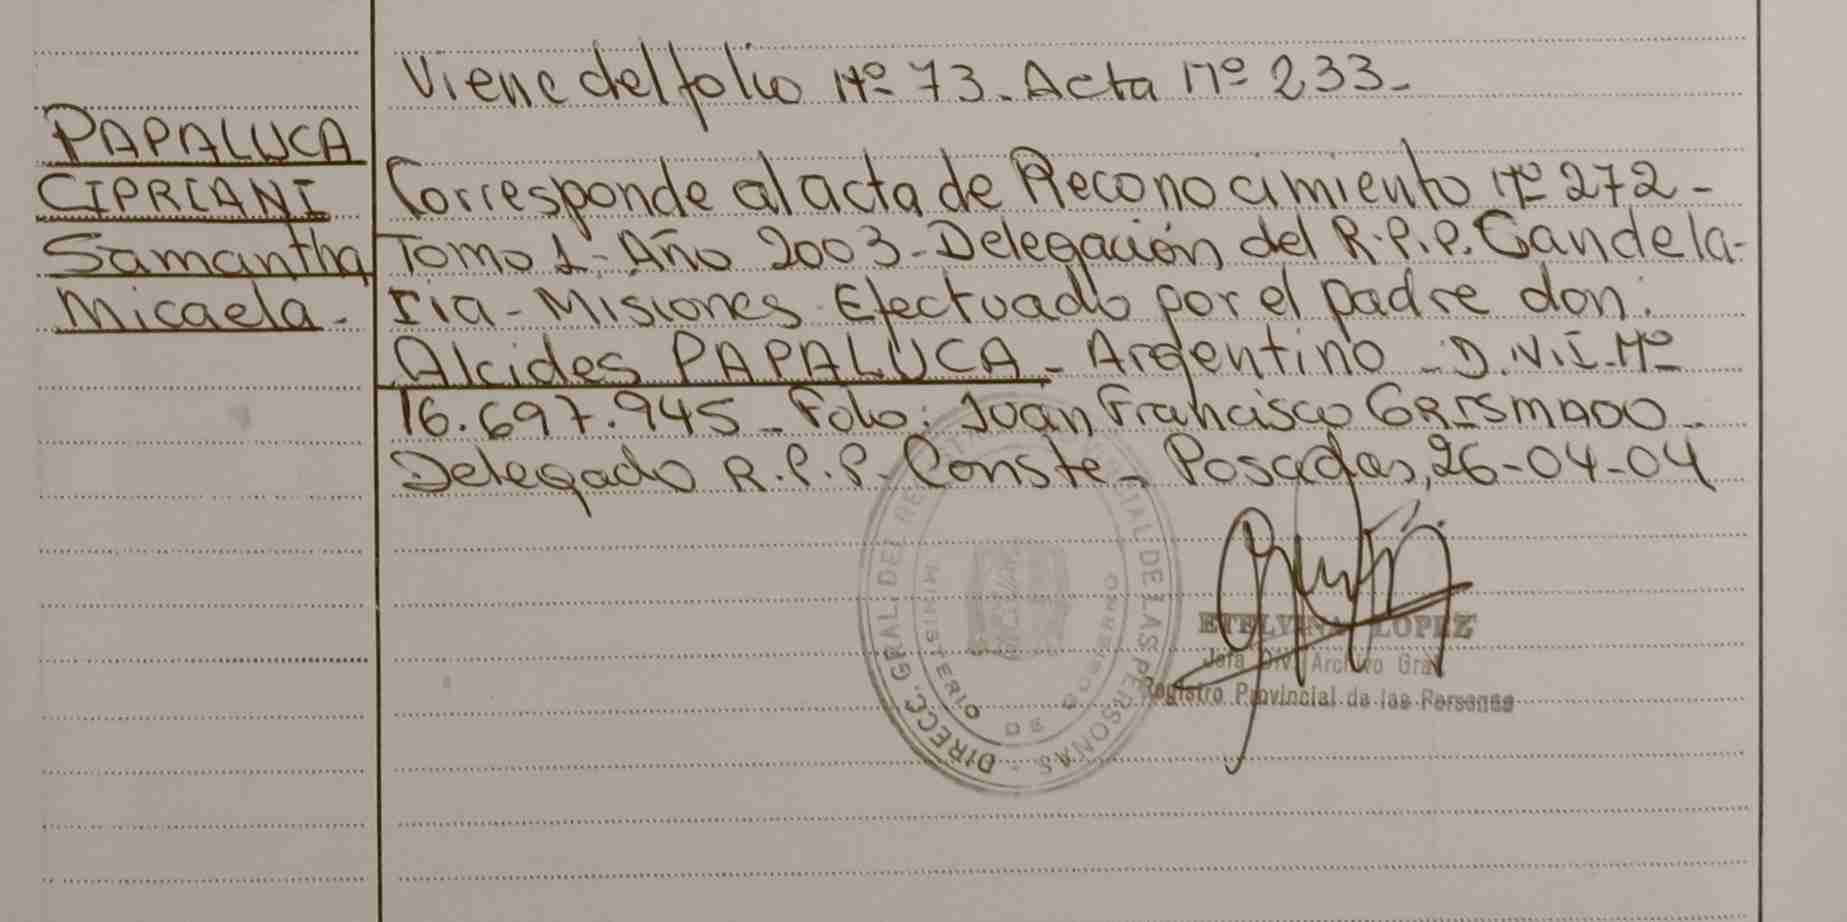 Viene del folio Nº 73. Acta Nº 233-
PAPALUCA
CIPRIANI
Samantha
Micaela-
Corresponde al acta de Reconocimiento Nº 272-
Tomo 1- Año 2003- Delegación del R.P.P. Candela-
ria- Misiones. Efectuado por el padre don:
Alcides PAPALUCA- Argentino- D.N.I. Nº
16.697.945- Fdo: Juan Francisco GRISMADO-
Delegado R.P.P. Conste- Posadas, 26-04-04
ETELVINA LOPEZ
Jefa Div. Archivo Gral
Registro Provincial de las Personas
DIRECC. GRAL. DEL REG. CIAL DE LAS PERSONAS
MINISTERIO DE GOBIERNO